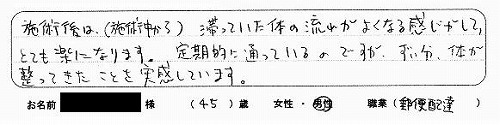 施術後は、(施術中から) 滞っていた体の流れがよくなる感じがして、
とても楽になります。 定期的に通っているのですが、ずい分、体が
整ってきたことを実感しています。
お名前 様 (45) 歳 女性・男性 職業(郵便配達)